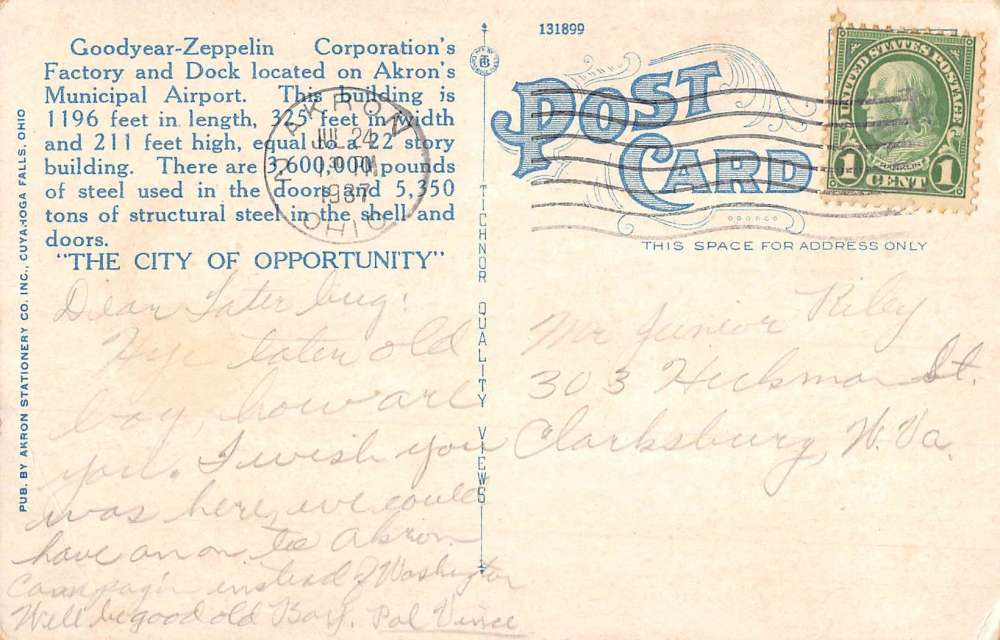 Goodyear-Zeppelin Corporation's
Factory and Dock located on Akron's
Municipal Airport. This building is
1196 feet in length, 325 feet in width
and 211 feet high, equal to a 22 story
building. There are 3,600,000 pounds
of steel used in the doors and 5,350
tons of structural steel in the shell and
doors.
"THE CITY OF OPPORTUNITY"
PUB. BY AKRON STATIONERY CO. INC., CUYAHOGA FALLS, OHIO
AKRON
JUL 24
PM
1937
OHIO
TICHNOR QUALITY VIEWS
131899
POST
CARD
THIS SPACE FOR ADDRESS ONLY
UNITED STATES POSTAGE
FRANKLIN
1 CENT 1
Dear Tater bug:
Hye tater old
boy, how are
you. I wish you
was here, we could
have an on to Akron
Campagin instead of Washington
Well be good old Boy. Pal Vince
Mr Junior Riley
303 Hickman St.
Clarksburg, W. Va.